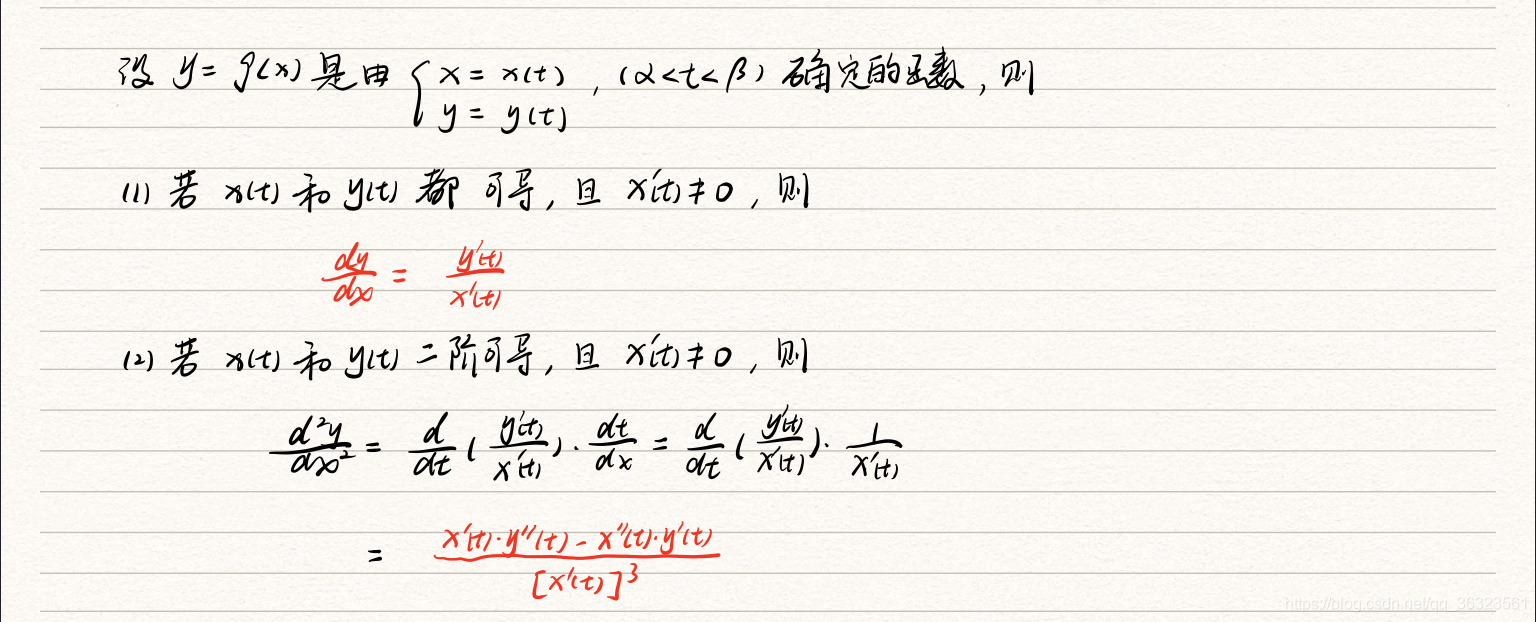 设 y = f(x) 是由 { x = x(t) , (α<t<β) 确定的函数, 则
y = y(t)
(1) 若 x(t) 和 y(t) 都可导, 且 x'(t) ≠ 0, 则
dy/dx = y'(t)/x'(t)
(2) 若 x(t) 和 y(t) 二阶可导, 且 x'(t) ≠ 0, 则
d²y/dx² = d/dt (y'(t)/x'(t)) · dt/dx = d/dt (y'(t)/x'(t)) · 1/x'(t)
= x'(t)·y''(t) - x''(t)·y'(t) / [x'(t)]³
https://blog.csdn.net/qq_36323561